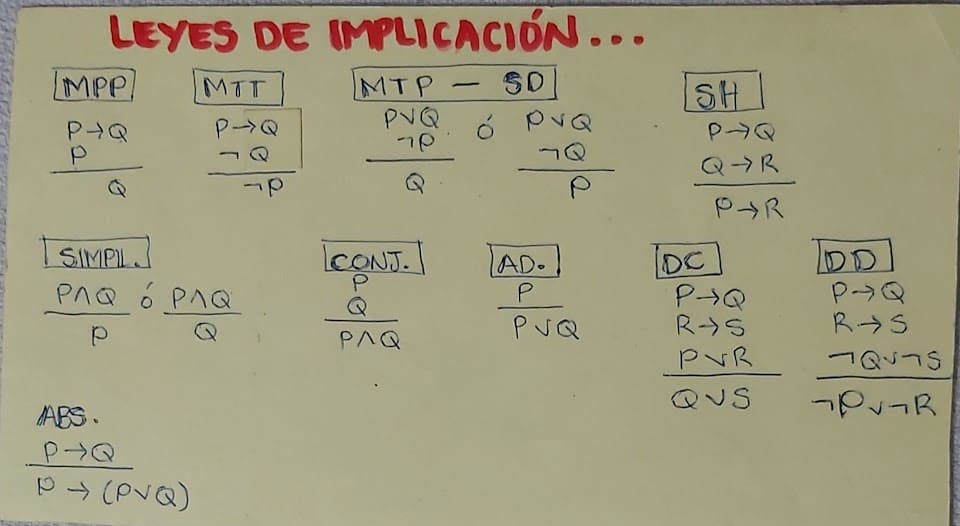 LEYES DE IMPLICACIÓN...
MPP
P→Q
P
Q
MTT
P→Q
¬Q
¬P
MTP – SD
P∨Q ó P∨Q
¬P ¬Q
Q P
SH
P→Q
Q→R
P→R
SIMPL.
P∧Q ó P∧Q
P Q
CONJ.
P
Q
P∧Q
AD.
P
P∨Q
DC
P→Q
R→S
P∨R
Q∨S
DD
P→Q
R→S
¬Q∨¬S
¬P∨¬R
ABS.
P→Q
P→(P∨Q)